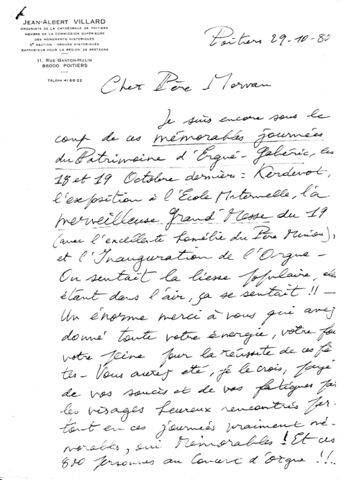 JEAN-ALBERT VILLARD
ORGANISTE DE LA CATHÉDRALE DE POITIERS
MEMBRE DE LA COMMISSION SUPÉRIEURE
DES MONUMENTS HISTORIQUES
5e SECTION - ORGUES HISTORIQUES
RAPPORTEUR POUR LA RÉGION DE BRETAGNE
11, RUE GASTON-HULIN
86000 POITIERS
Poitiers 29-10-80
Cher Père Morvan
Je suis encore sous le
coup de ces mémorables journées
du Patrimoine d'Ergué-Gabéric, les
18 et 19 Octobre derniers: Kerdévot,
l'exposition à l'Ecole Maternelle, la
merveilleuse Grand'Messe du 19
(avec l'excellente homélie du Père
et l'Inauguration de l'Orgue -
On sentait la liesse populaire,
étant dans l'air, ça se sentait !! -
Un énorme merci à vous qui avez
donné toute votre énergie, votre foi
votre peine pour la réussite de ces fê-
tes - Vous aurez été, je le crois, payé
de vos soucis et de vos fatigues par
les visages heureux rencontrés par-
tout en ces journées vraiment mé-
morables, oui Mémorables ! Et ces
800 personnes au Concert d'Orgue !!!